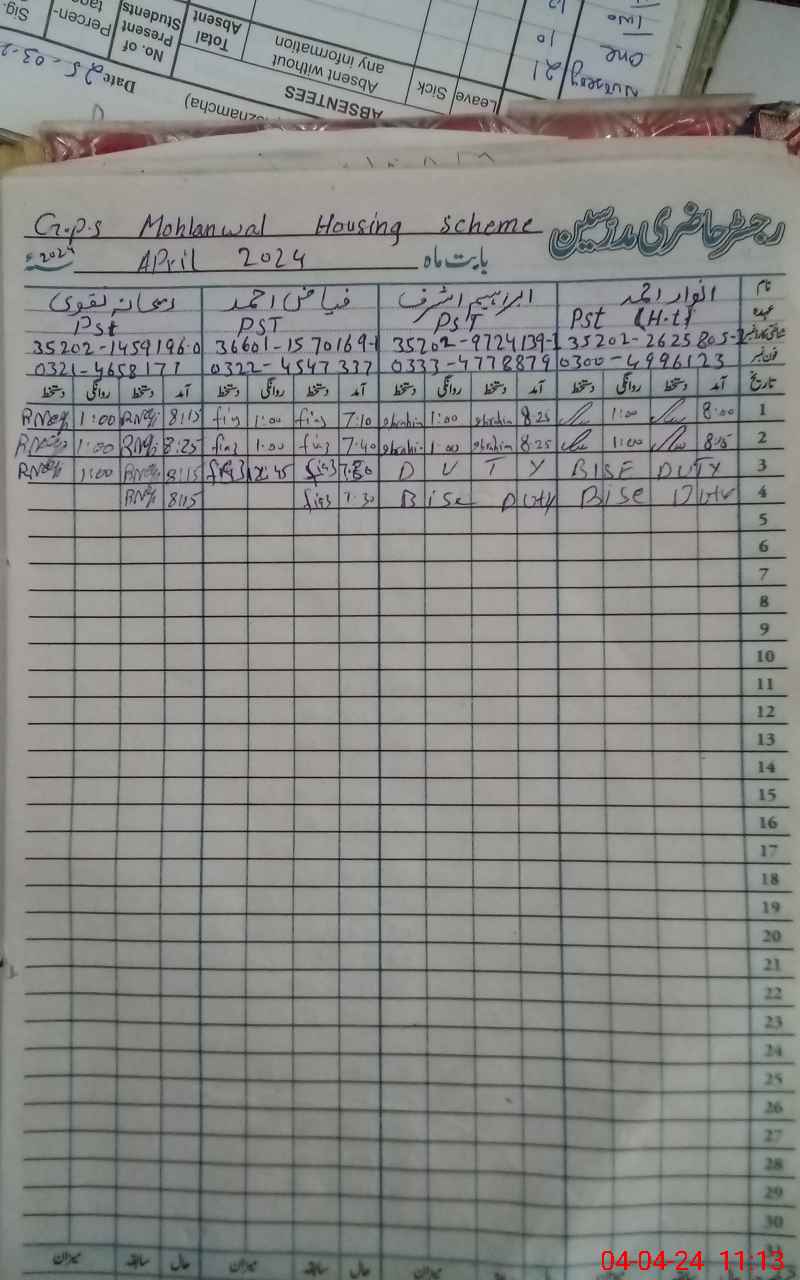 Nursery 21
One 10
Two 12
Leave
Sick
Absent without any information
ABSENTEES
Total Absent
No. of Present Students
Percen-
Sig.
Date 25-03-2
G.p.s Mohlanwal Housing Scheme رجسٹر حاضری مدرسین
بابت ماہ April 2024 2024ء
نام انوار احمد ابراہیم اشرف فیاض احمد ریحانہ نقوی
عہدہ Pst (H.t) PST PST Pst
شناختی کارڈ نمبر 35202-2625805- 35202-9724139-1 36601-1570169-1 35202-1459196-0
فون نمبر 0300-4996123 0333-4778879 0322-4547337 0321-4658177
تاریخ آمد دستخط روانگی دستخط آمد دستخط روانگی دستخط آمد دستخط روانگی دستخط آمد دستخط روانگی دستخط
1 8:00 1:00 8:25 ebrahim 1:00 ebrahim 7:10 1:00 8:15 1:00
2 8:15 1:00 8:25 ebrahim 1:00 ebrahim 7:40 1:00 8:25 1:00
3 BISE DUTY DUTY 7:30 12:45 8:15 1:00
4 BISE Duty Bise Duty 7:30 8:15
5
6
7
8
9
10
11
12
13
14
15
16
17
18
19
20
21
22
23
24
25
26
27
28
29
30
31
میزان سابقہ حال میزان سابقہ حال میزان
04-04-24 11:13